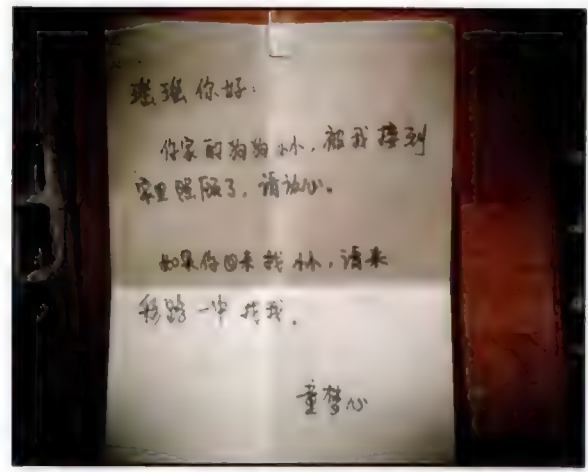 瑶瑶你好：
你家的狗狗小小，被我接到
家里照顾了，请放心。
如果你回来找小小，请来
移路一中找我。
童梦心